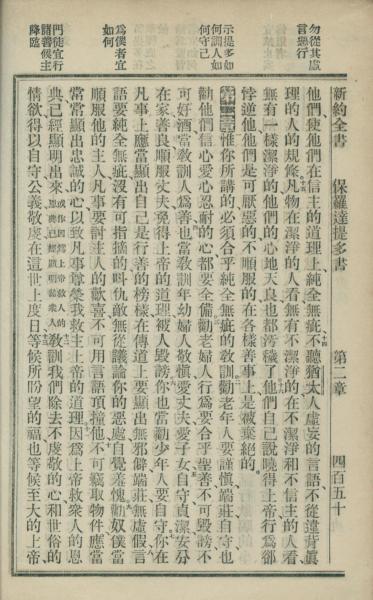 新約全書 保羅達提多書 第二章 四百五十
勿從其虛言惡行
示提多如何訓人如何守己
爲僕者宜如何
門徒宜行諸善候主降臨
他們使他們在信主的道理上純全無疵不聽猶太人虛妄的言語不從違背眞
理的人的規條凡物在潔淨的人看無有不潔淨的在不潔淨和不信主的人看
無有一樣潔淨的他們的心地天良也都污穢了他們自己說曉得上帝行爲卻
悖逆他他們是可厭惡的不順服的在各樣善事上是被棄絕的
第二章惟你所講的必須合乎純全無疵的教訓勸老年人要謹愼端莊自守也
勸他們信心愛心忍耐的心都要全備勸老婦人行爲要合乎聖善不可毀謗不
可好酒當敎訓人爲善也當敎訓年幼婦人敬愼愛丈夫愛子女自守貞潔安分
在家善良順服丈夫免得上帝的道理被人毀謗你也當勸少年人要自守你在
凡事上應當顯出自己是行善的榜樣在傳道上要顯出無邪僻端莊無虛假言
語要純全無疵沒有可指摘的叫仇敵無從議論你的惡處自覺羞愧勸奴僕當
順服他的主人凡事要討主人的歡喜不可用言語頂撞他不可竊取物件應當
常常顯出忠誠的心以致凡事尊榮我救主上帝的道理因爲上帝救衆人的恩
典已經顯明出來或作因爲上帝救人的恩典已經顯明給衆人敎訓我們除去不虔敬的心和世俗的
情欲得以自守公義敬虔在這世上度日等候所盼望的福也等候至大的上帝